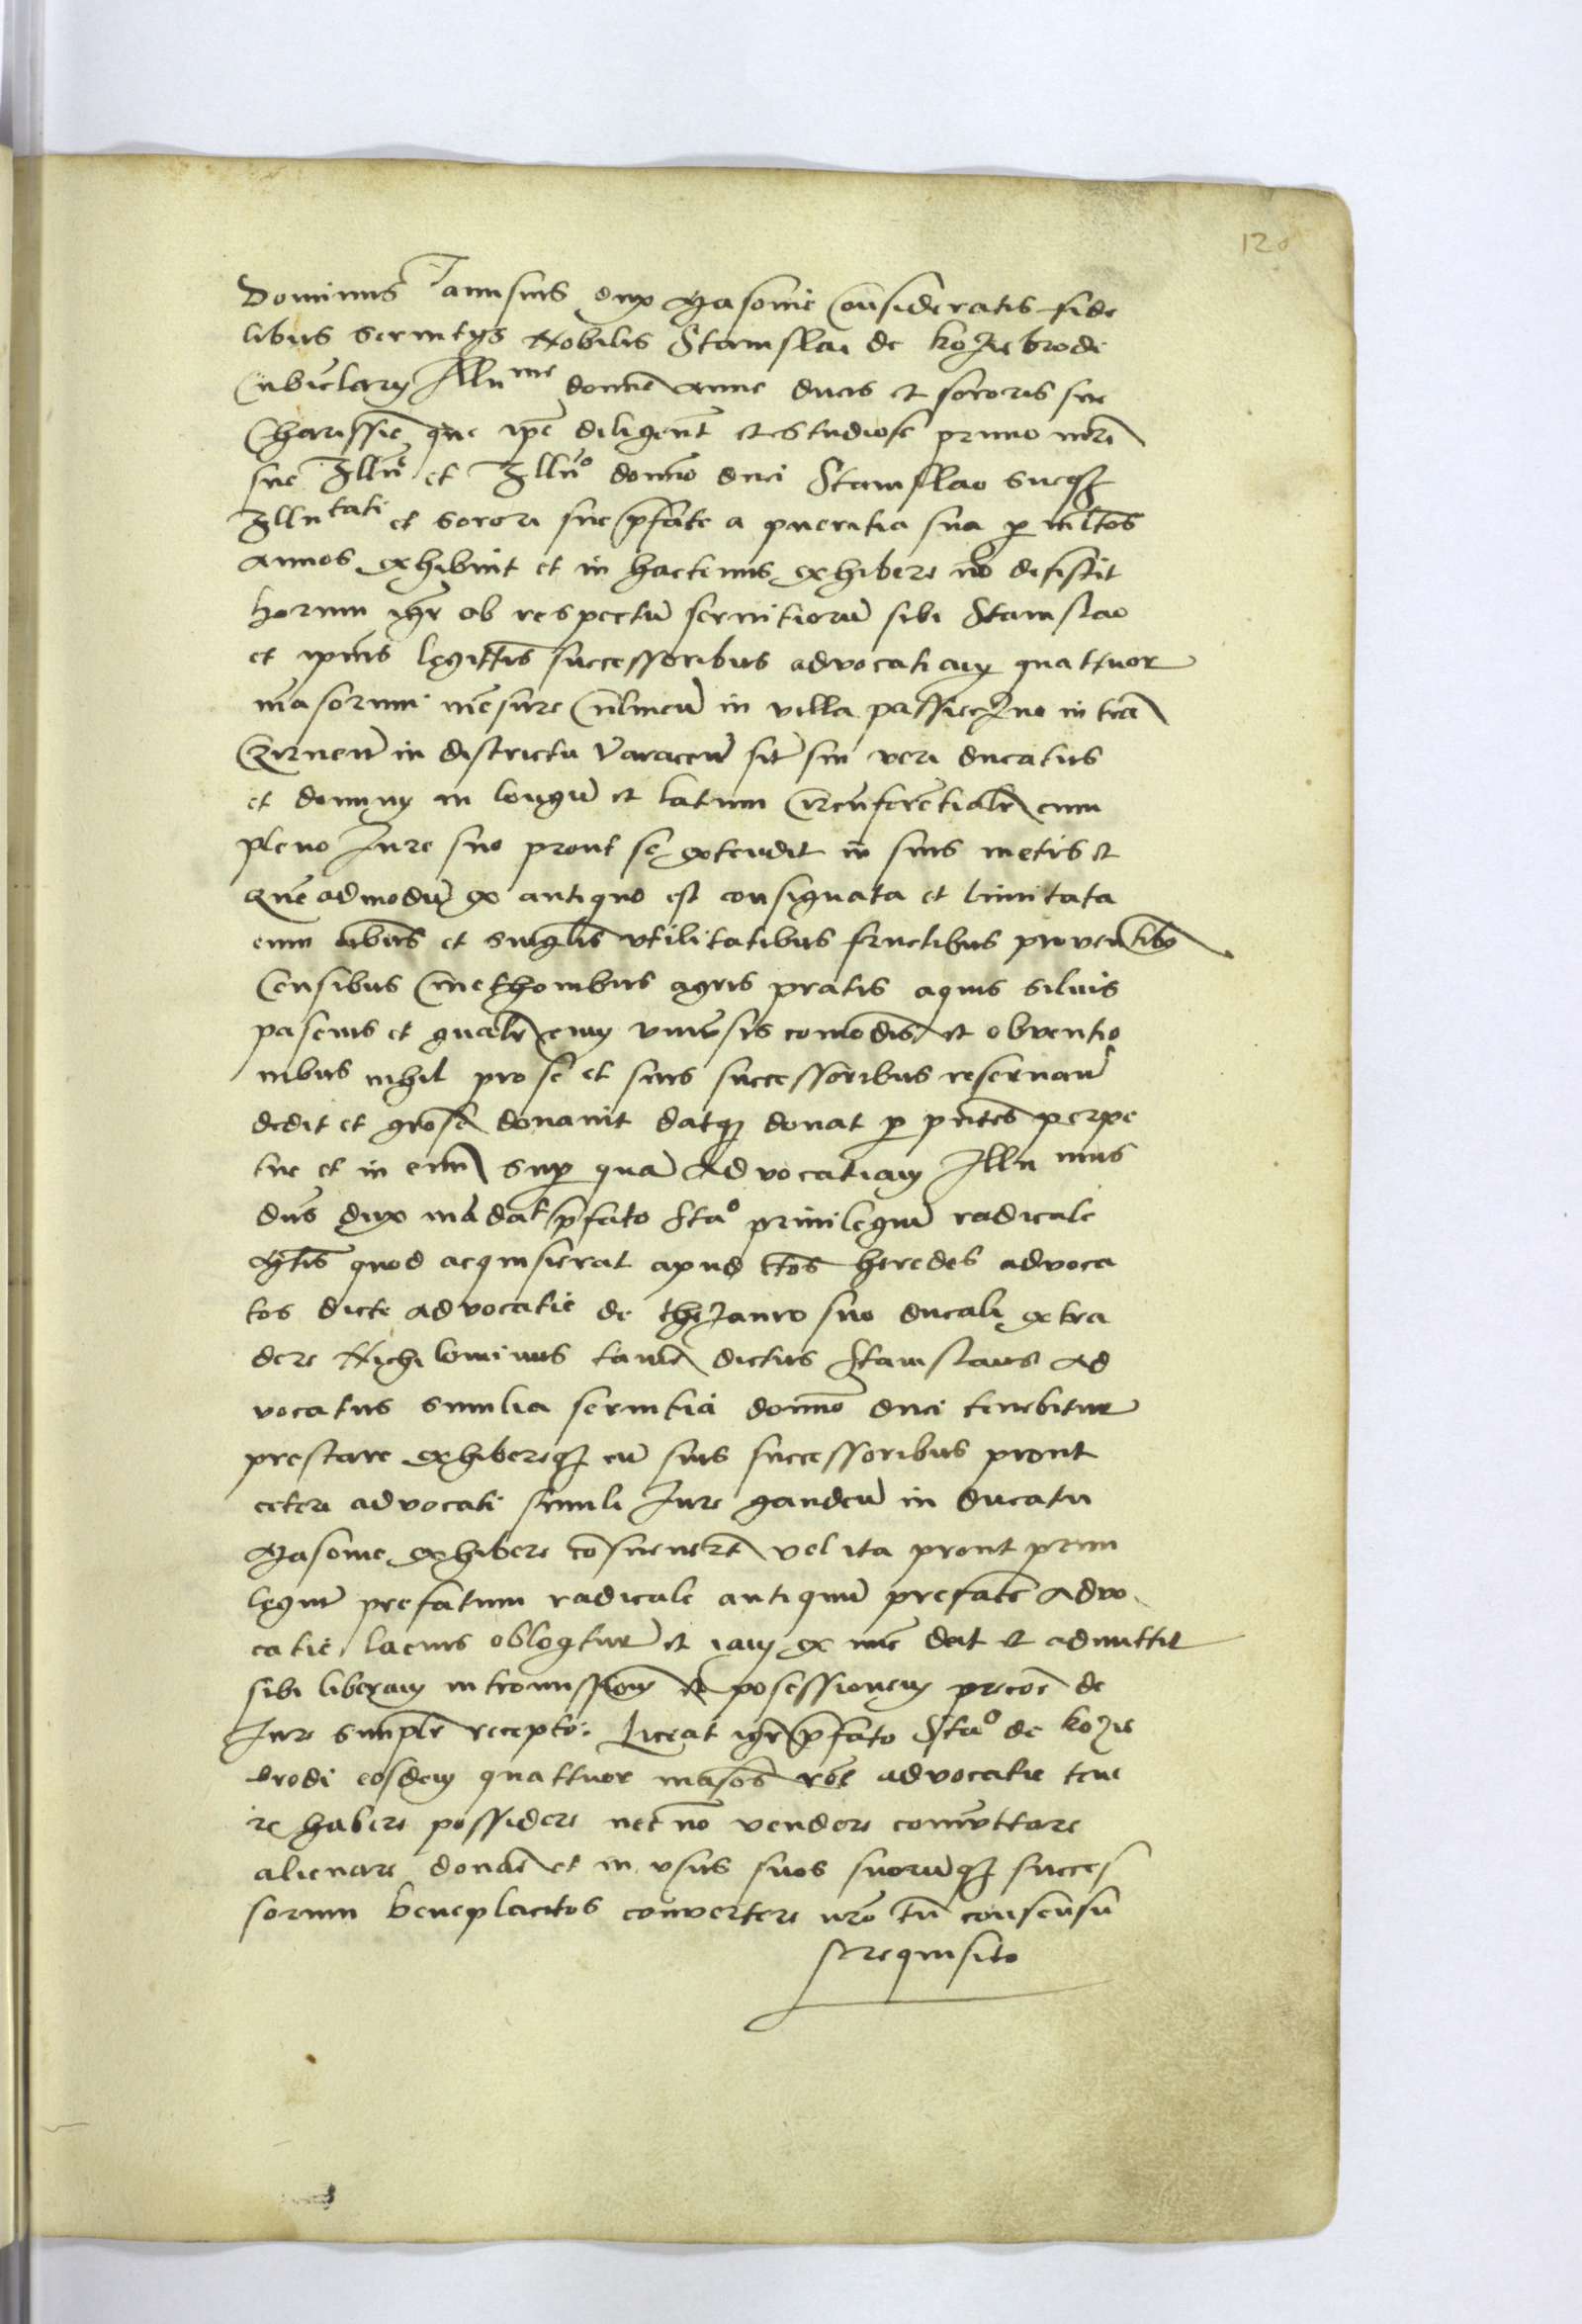 120
Dominus Janusius dux Masovie Consideratis fide
libus servitys Nobilis Stanislai de koziebrodi
Cubiclary Illu me domne Anne ducis et sororis sue
Charissie que ipe diligent et studiose primo mri
sue Illu e et Illu o domno duci Stanislao sueqz
Illu tati et sorori sue pfate a pueritia sua p mltos
Annos exhibuit et in hactenus exhibere no desistit
horum igr ob respectu servitioru sibi Stanislao
et ipius legittis successoribus advocatiam quattuor
mansorum mesure Culmen in villa passieczno in tra
Czirnen in districtu Varacen sit sui veri ducatus
et dominy in longu et latum Circuferetialr cum
pleno Iure suo prout se extendit in suis metis et
que admodu ex antiquo est consignata et limitata
cum oibus et singulis utilitatibus fructibus proventibus
Censibus Cmethonibus agris pratis aquis silvis
pascuis et gnalr cum univsis comodis et obventio
nibus nihil pro se et suis successoribus reservan
dedit et gtose donavit datqz donat p pntes perpe
tue et in evum Sup qua Advocatiam Illu mus
dns dux madat pfato Sta o privilegiu radicale
quod acquisierat apud ctos heredes advoca
tos dicte advocatie de thezauro suo ducali extra
dere Nichilominus tame dictus Stanislaus Ad
vocatus similia servitia domno duci tenebitur
prestare exhibereqz cu suis successoribus prout
ceteri advocati simili Iure gauden in ducatu
Masovie exhibere consuevert vel ita prout privi
legiu prefatum radicale antiquu prefate Advo
catie lacius obloqtur et iam ex nuc dat et admittit
sibi liberam intromissionem et posessionem de
Iure simplr recepto. Liceat igr pfato Sta o de kozie
brodi eosdem quattuor masos roe advocatie tene
re habere possidere nec no vendere comuttare
alienare donare et in usus suos suoruqz succes
sorum beneplacitos convertere nro tn consensu
requisito